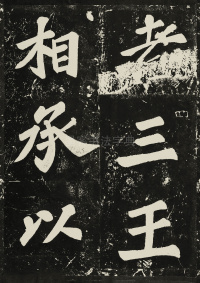 老三王
相承以